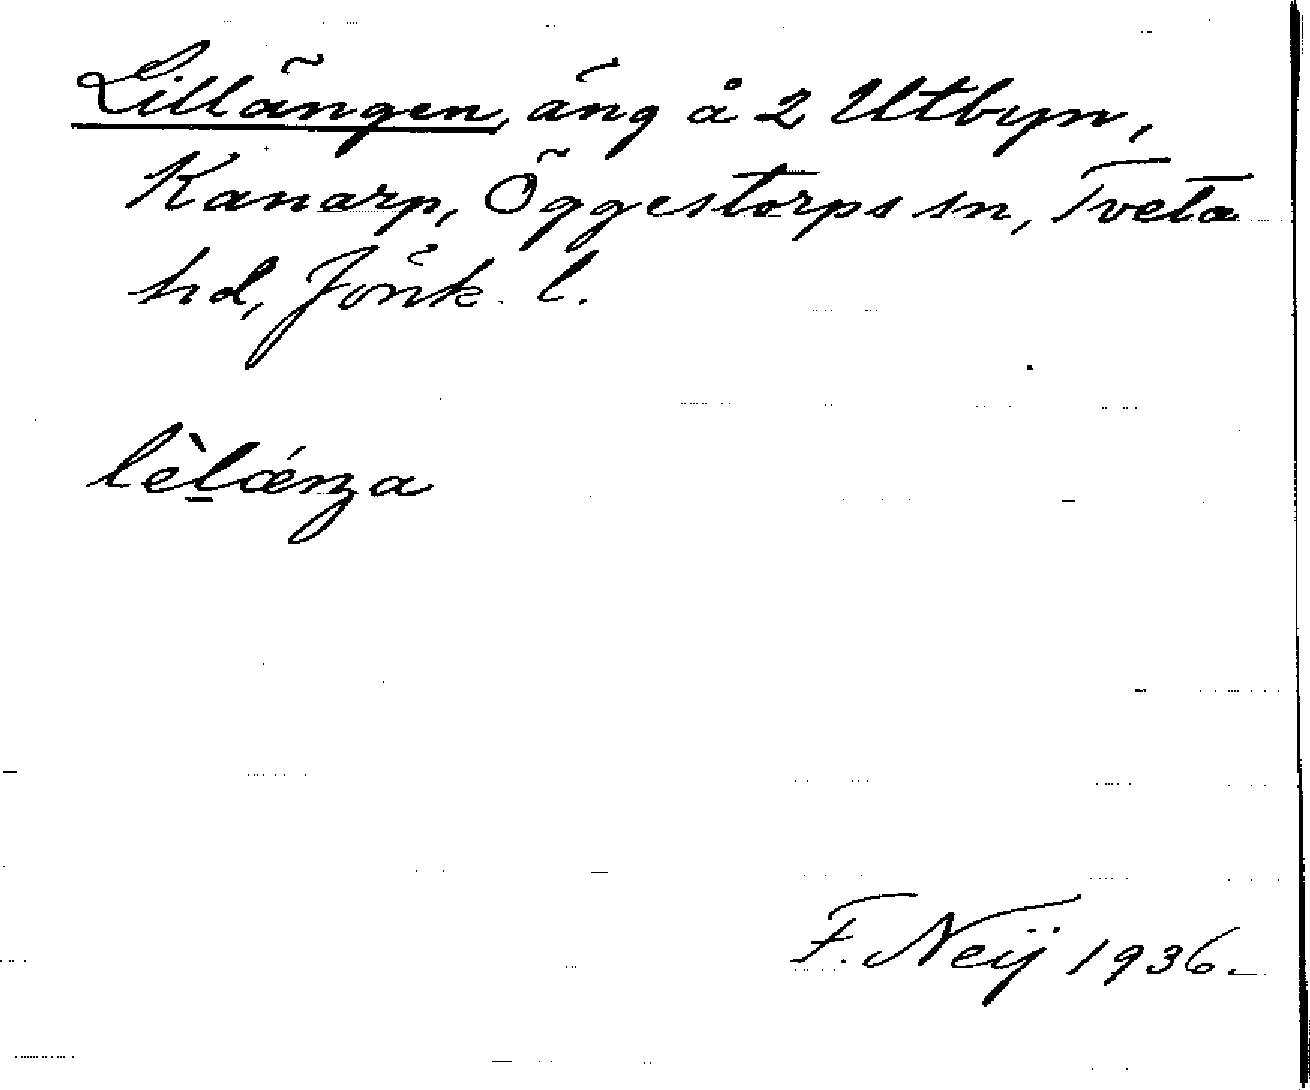 Lillängen, äng å 2 Utbyn,
Kanarp, Öggestorps sn, Tveta
hd, Jönk. l.
lèl̠ǽnŋa
F. Neij 1936.